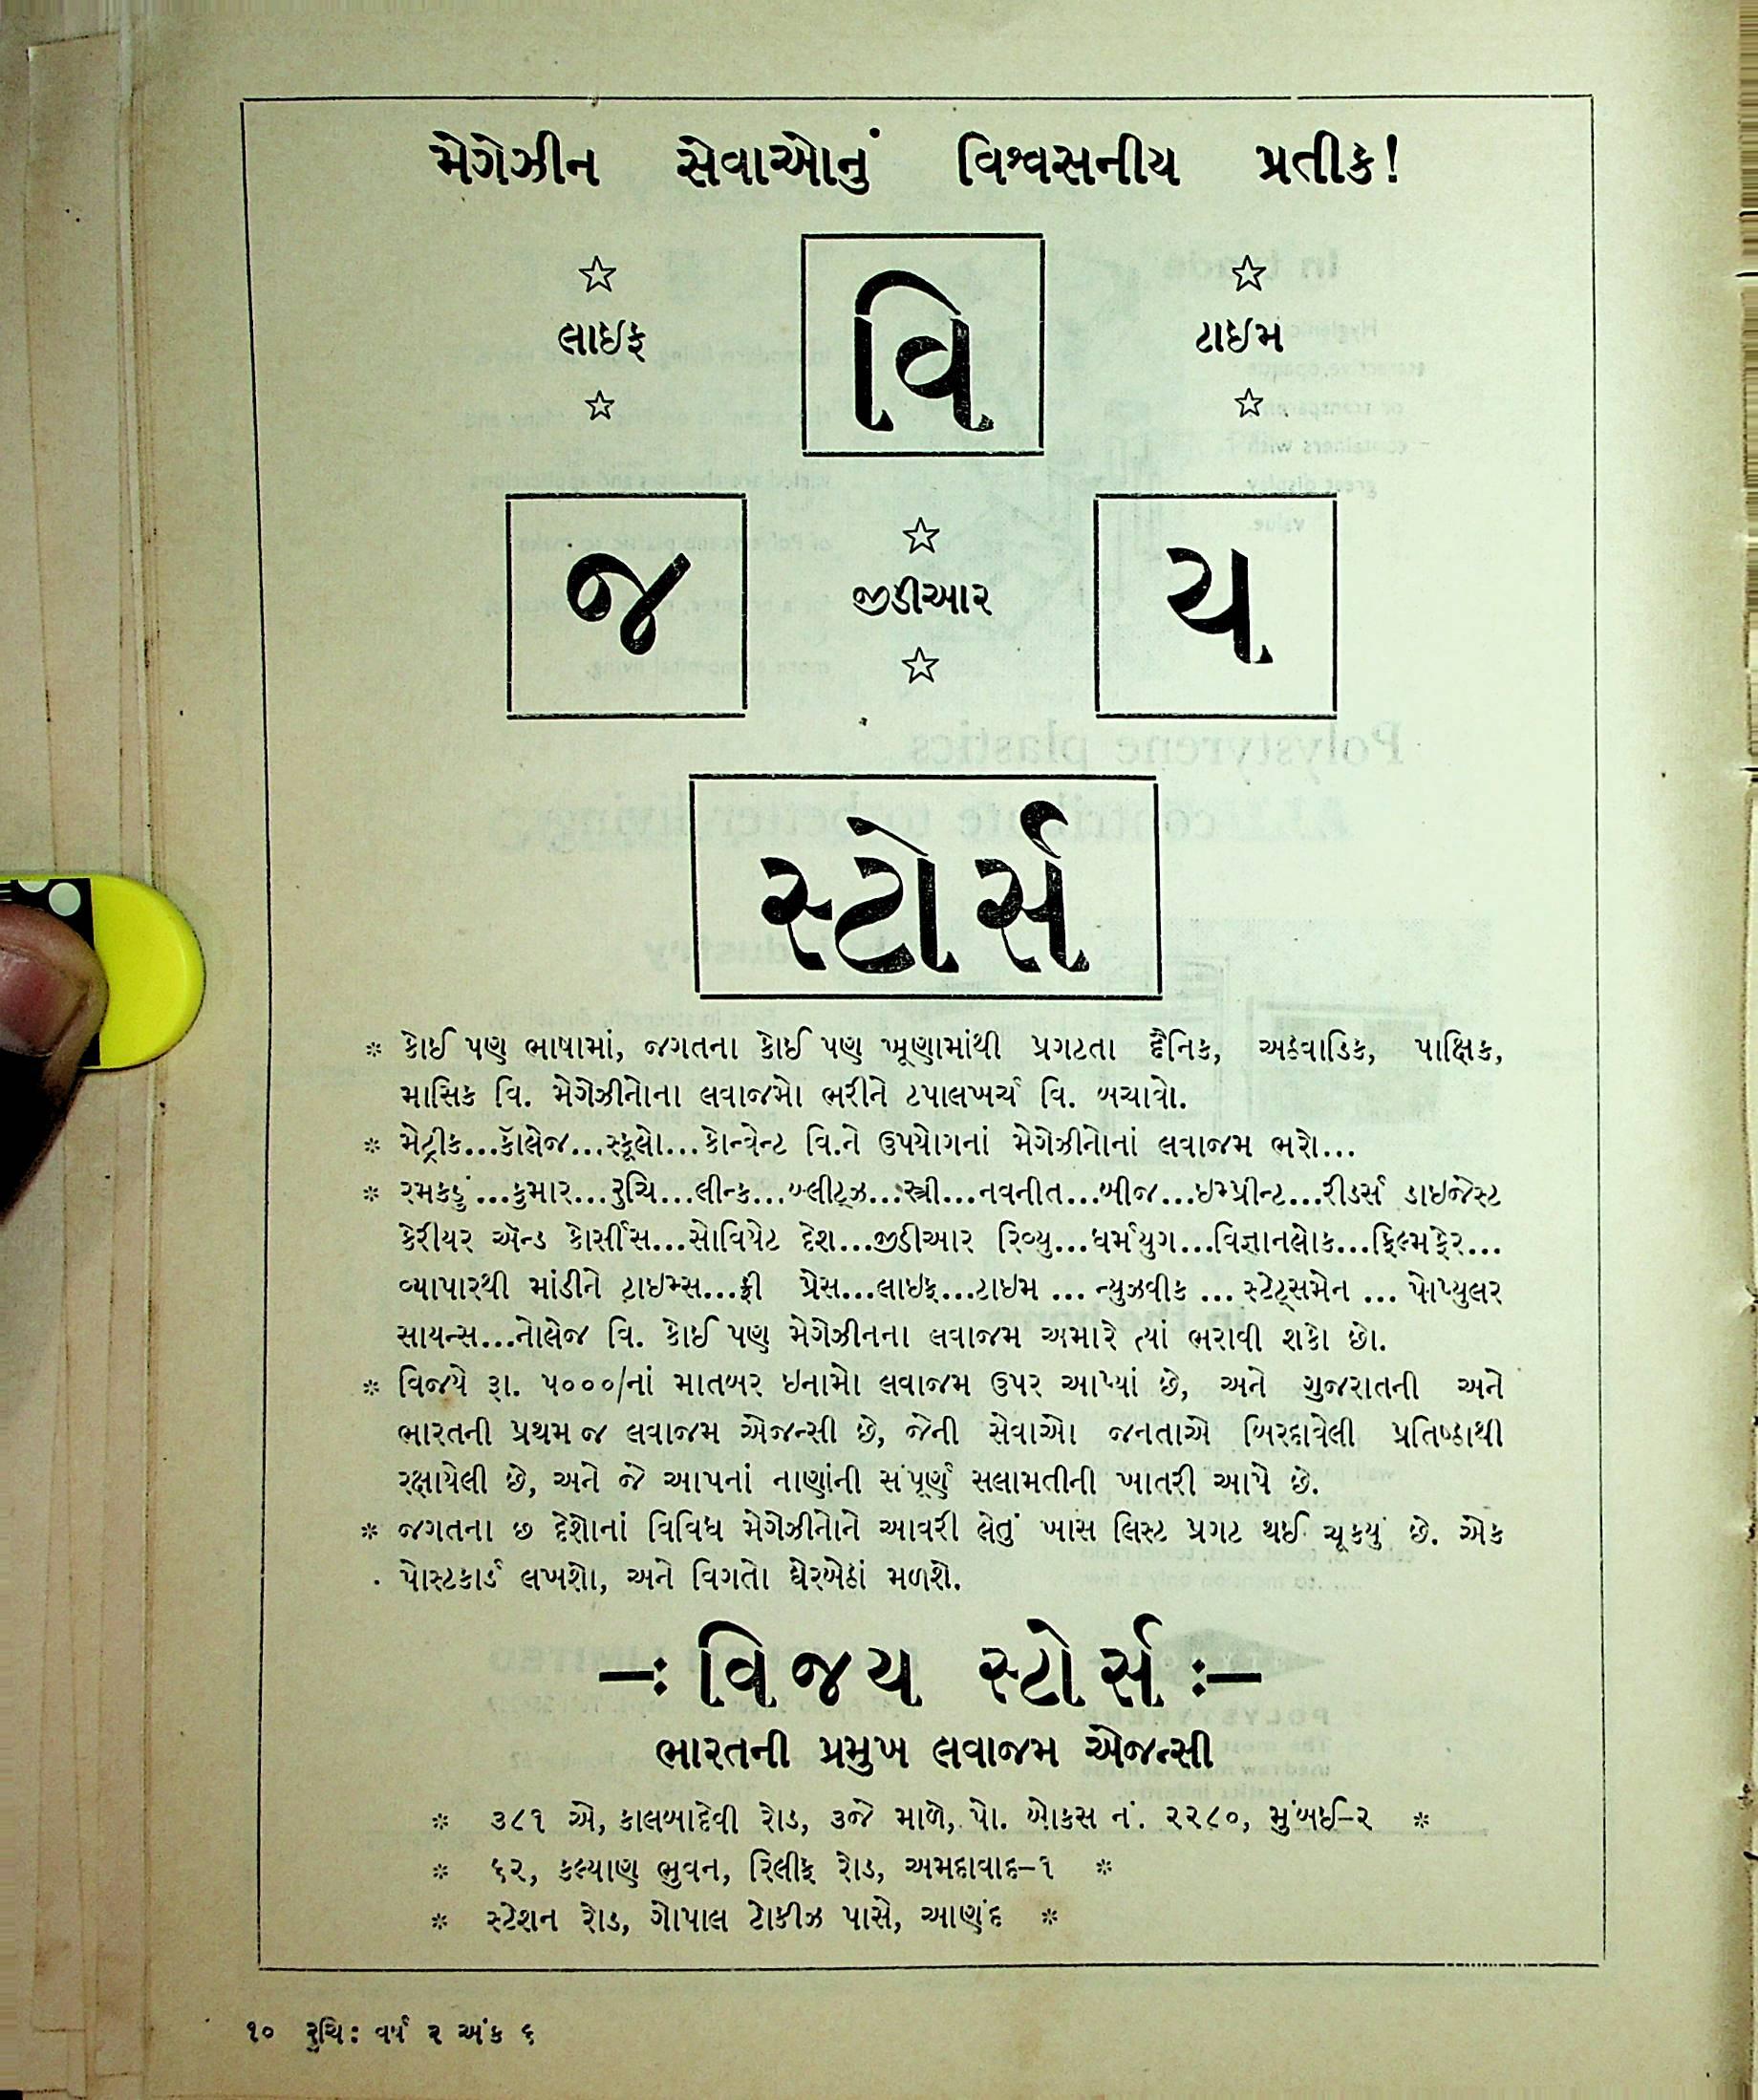 મેગેઝીન સેવાઓનું વિશ્વસનીય પ્રતીક!
☆ ☆
લાઈફ વિ ટાઈમ
☆ ☆
☆
જ જીડીઆર ય
☆
સ્ટોર્સ
* કોઈ પણ ભાષામાં, જગતના કોઈ પણ ખૂણામાંથી પ્રગટતા દૈનિક, અઠવાડિક, પાક્ષિક,
માસિક વિ. મેગેઝીનોના લવાજમો ભરીને ટપાલખર્ચ વિ. બચાવો.
* મેટ્રીક...કૉલેજ...સ્કૂલો...કોન્વેન્ટ વિ.ને ઉપયોગનાં મેગેઝીનોનાં લવાજમ ભરો...
* રમકડું...કુમાર...રુચિ...લીન્ક...બ્લીટ્ઝ...સ્ત્રી...નવનીત...બીજ...ઇમ્પ્રીન્ટ...રીડર્સ ડાઇજેસ્ટ
કેરીયર ઍન્ડ કોર્સીસ...સોવિયેટ દેશ...જીડીઆર રિવ્યુ...ધર્મયુગ...વિજ્ઞાનલોક...ફિલ્મફેર...
વ્યાપારથી માંડીને ટાઇમ્સ...ફ્રી પ્રેસ...લાઇફ...ટાઇમ ... ન્યુઝવીક ... સ્ટેટ્સમેન ... પોપ્યુલર
સાયન્સ...નોલેજ વિ. કોઈ પણ મેગેઝીનના લવાજમ અમારે ત્યાં ભરાવી શકો છો.
* વિજયે રૂા. ૫૦૦૦/નાં માતબર ઇનામો લવાજમ ઉપર આપ્યાં છે, અને ગુજરાતની અને
ભારતની પ્રથમ જ લવાજમ એજન્સી છે, જેની સેવાઓ જનતાએ બિરદાવેલી પ્રતિષ્ઠાથી
રક્ષાયેલી છે, અને જે આપનાં નાણાંની સંપૂર્ણ સલામતીની ખાતરી આપે છે.
* જગતના છ દેશોનાં વિવિધ મેગેઝીનોને આવરી લેતું ખાસ લિસ્ટ પ્રગટ થઈ ચૂકયું છે. એક
પોસ્ટકાર્ડ લખશો, અને વિગતો ઘેરબેઠાં મળશે.
—: વિજય સ્ટોર્સ :—
ભારતની પ્રમુખ લવાજમ એજન્સી
* ૩૮૧ એ, કાલબાદેવી રોડ, ૩જે માળે, પો. બોકસ નં. ૨૨૮૦, મુંબઈ–૨ *
* ૬૨, કલ્યાણ ભુવન, રિલીફ રોડ, અમદાવાદ–૧ *
* સ્ટેશન રોડ, ગોપાલ ટોકીઝ પાસે, આણંદ *
૧૦ રુચિ: વર્ષ ૨ અંક ૬